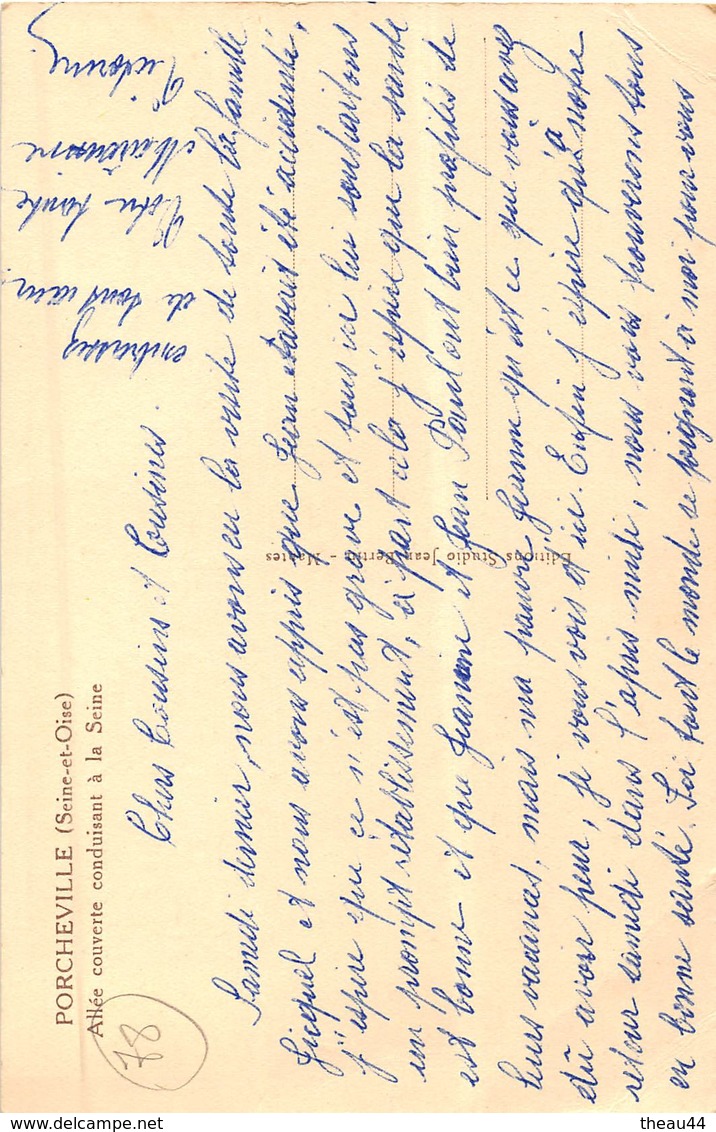 PORCHEVILLE (Seine-et-Oise)
Allée couverte conduisant à la Seine
78
Chers Cousins et Cousines.
Samedi dernier, nous avons eu la visite de toute la famille
Jicquel et nous avons appris que Jean avait été accidenté,
j'espère que ce n'est pas grave et tous ici lui souhaitons
un prompt rétablissement, à part cela j'espère que la santé
est bonne et que Jeanine et Jean Paul ont bien profités de
leurs vacances, mais ma pauvre Jeanne qu'est ce que vous avez
dû avoir peur, je vous vois d'ici. Enfin j'espère qu'à notre
retour samedi dans l'après midi, nous vous trouverons tous
en bonne santé. Ici tout le monde se joignent à moi pour vous
embrasser
de tout cœur,
Votre tante
Marraine
Editions Studio Jean Bertin - Mantes
theau44